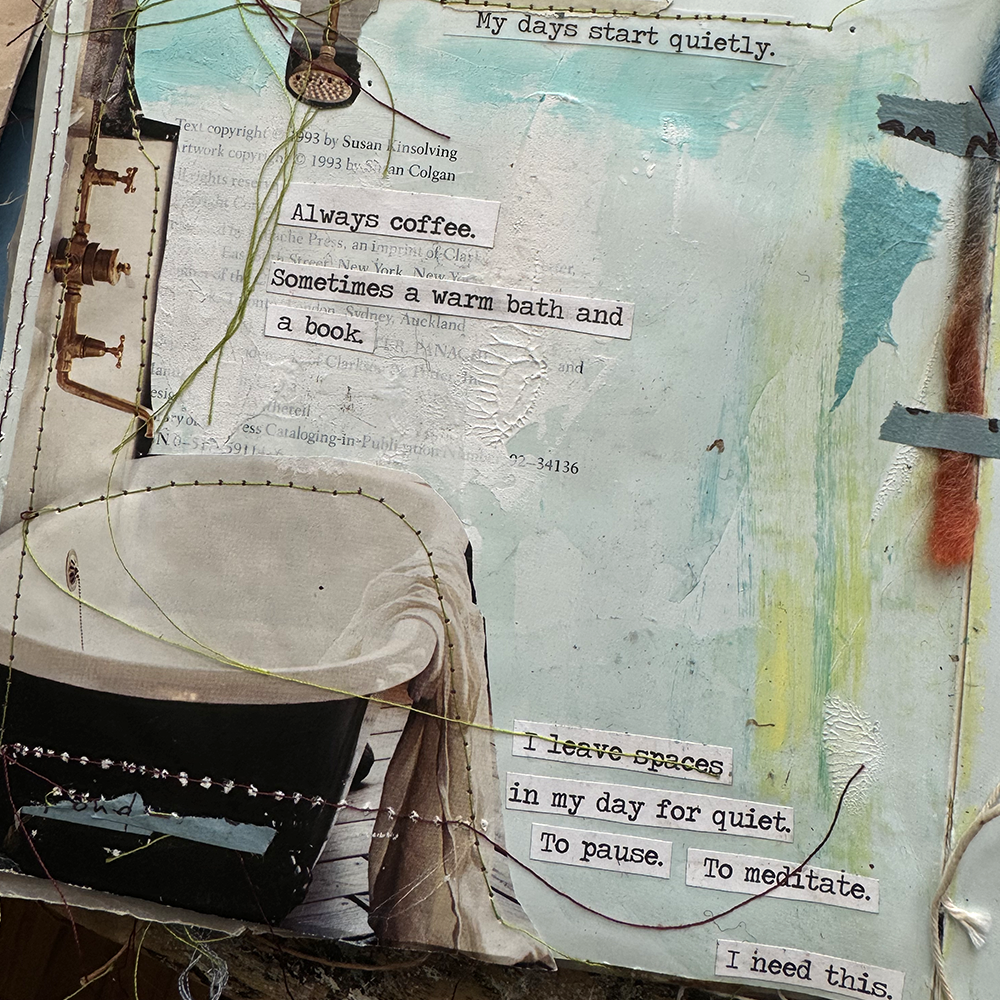 My days start quietly.
Text copyright © 1993 by Susan Kinsolving
Artwork copyright © 1993 by Susan Colgan
All rights
Always coffee.
Press, an imprint of
Street, New York, New
Sometimes a warm bath and
London, Sydney, Auckland
a book.
and
of Clarkson N.
Press Cataloging-in-Publication
92–34136
I leave spaces
in my day for quiet.
To pause.
To meditate.
I need this.